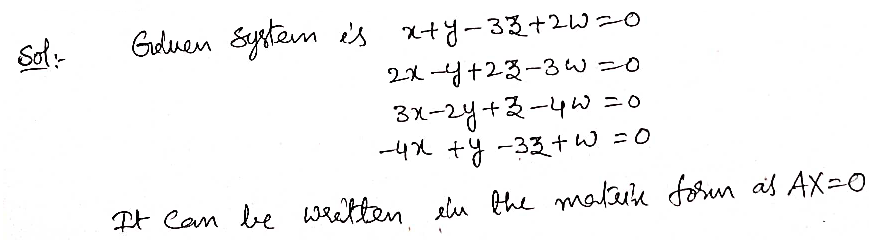 Sol:- Given system is x+y-3z+2w=0
2x-y+2z-3w=0
3x-2y+z-4w=0
-4x+y-3z+w=0
It can be written in the matrix form as AX=0